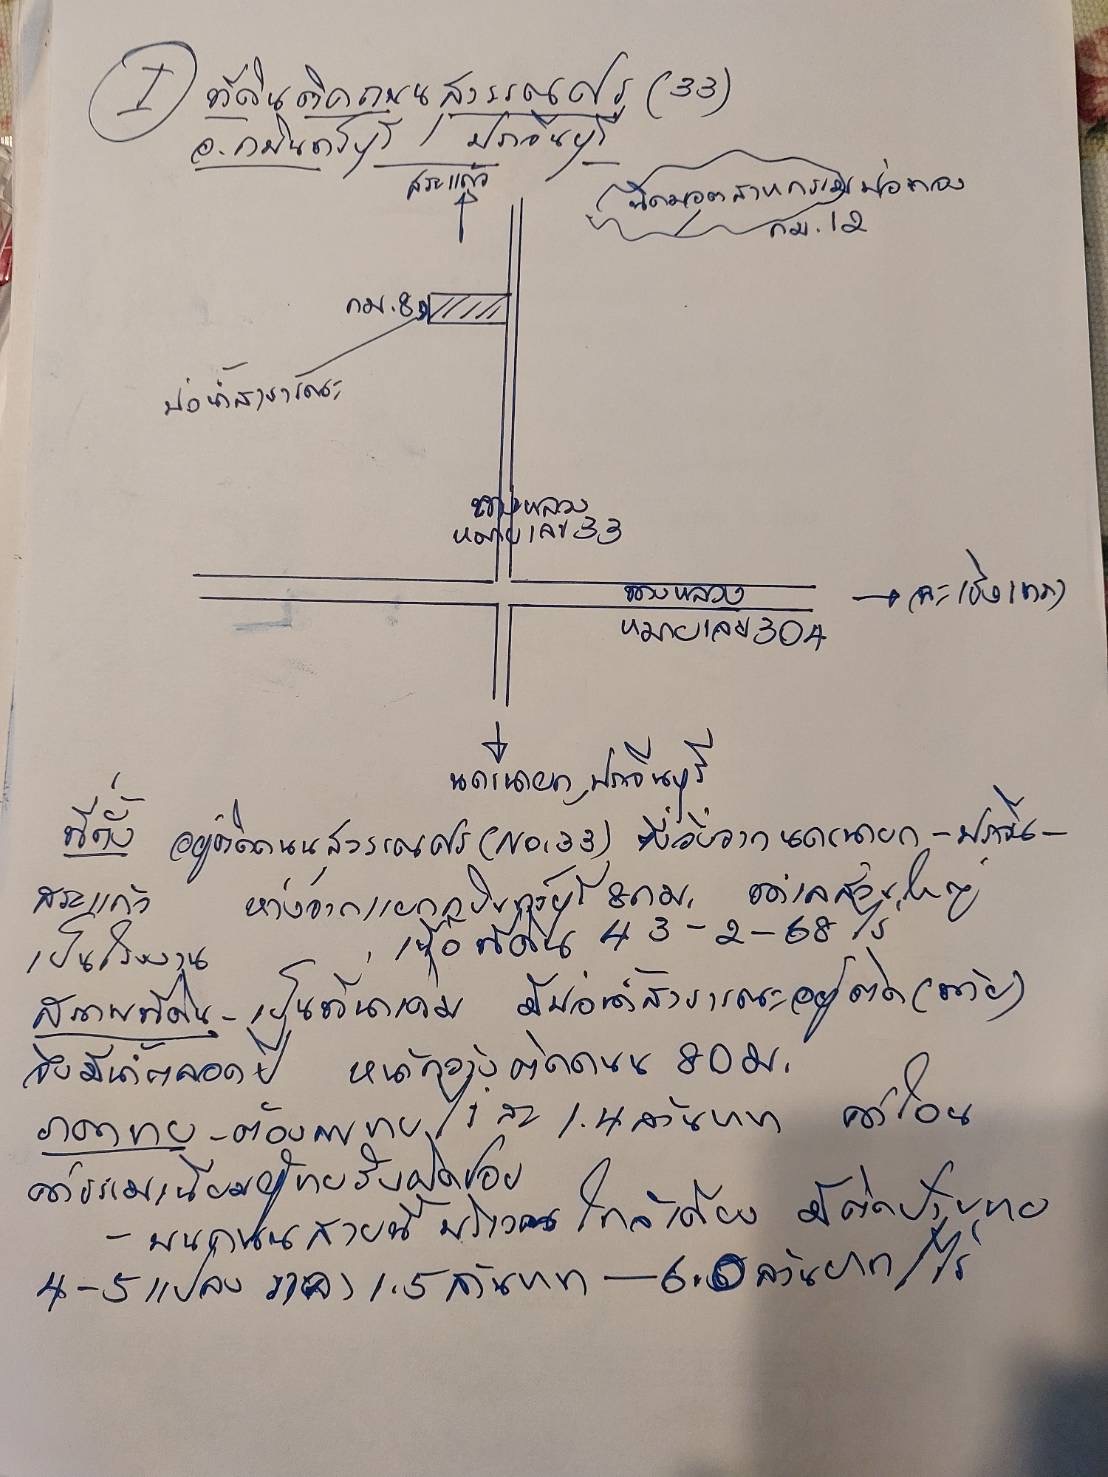 I ที่ดินติดถนนสุวรรณศร (33)
อ.กบินทร์บุรี / ปราจีนบุรี
สระแก้ว
นิคมอุตสาหกรรมบ่อทอง
กม.12
กม.8
บ่อน้ำสาธารณะ
ทางหลวง
หมายเลข 33
ทางหลวง
หมายเลข 304
ฉะเชิงเทรา
นครนายก, ปราจีนบุรี
ที่ตั้ง อยู่ติดถนนสุวรรณศร (No.33) ซึ่งวิ่งจากนครนายก - ปราจีน -
สระแก้ว ห่างจากแยกกบินทร์บุรี 8 กม. ทำเลส่วนใหญ่
เป็นโรงงาน , เนื้อที่ดิน 43-2-68 ไร่
สภาพที่ดิน - เป็นที่นาเดิม มีบ่อน้ำสาธารณะอยู่ติด (ท้าย)
จึงมีน้ำตลอดปี หน้ากว้างติดถนน 80 ม.
ราคาขาย - ต้องการขายไร่ละ 1.4 ล้านบาท ค่าโอน
ค่าธรรมเนียมผู้ขายรับผิดชอบ
- บนถนนสายนี้ บริเวณใกล้เคียง มีติดป้ายขาย
4-5 แปลง ราคา 1.5 ล้านบาท — 6.0 ล้านบาท/ไร่